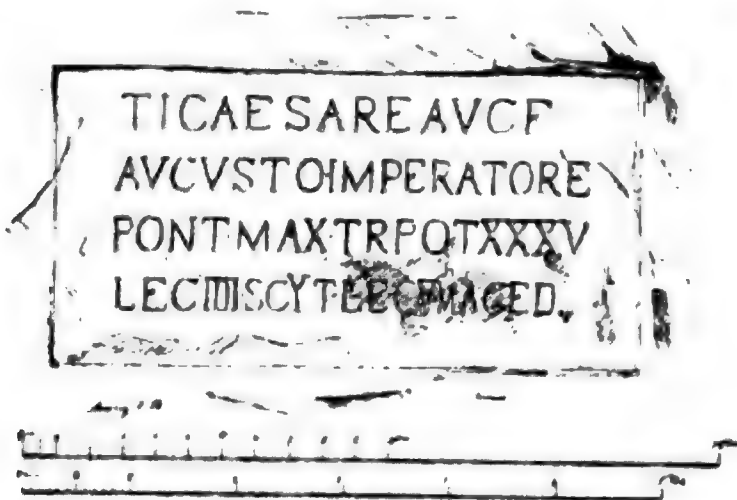 TICAESAREAVCF
AVCVSTOIMPERATORE
PONTMAXTRPOTXXXV
LECIIIISCYTLECVMACED